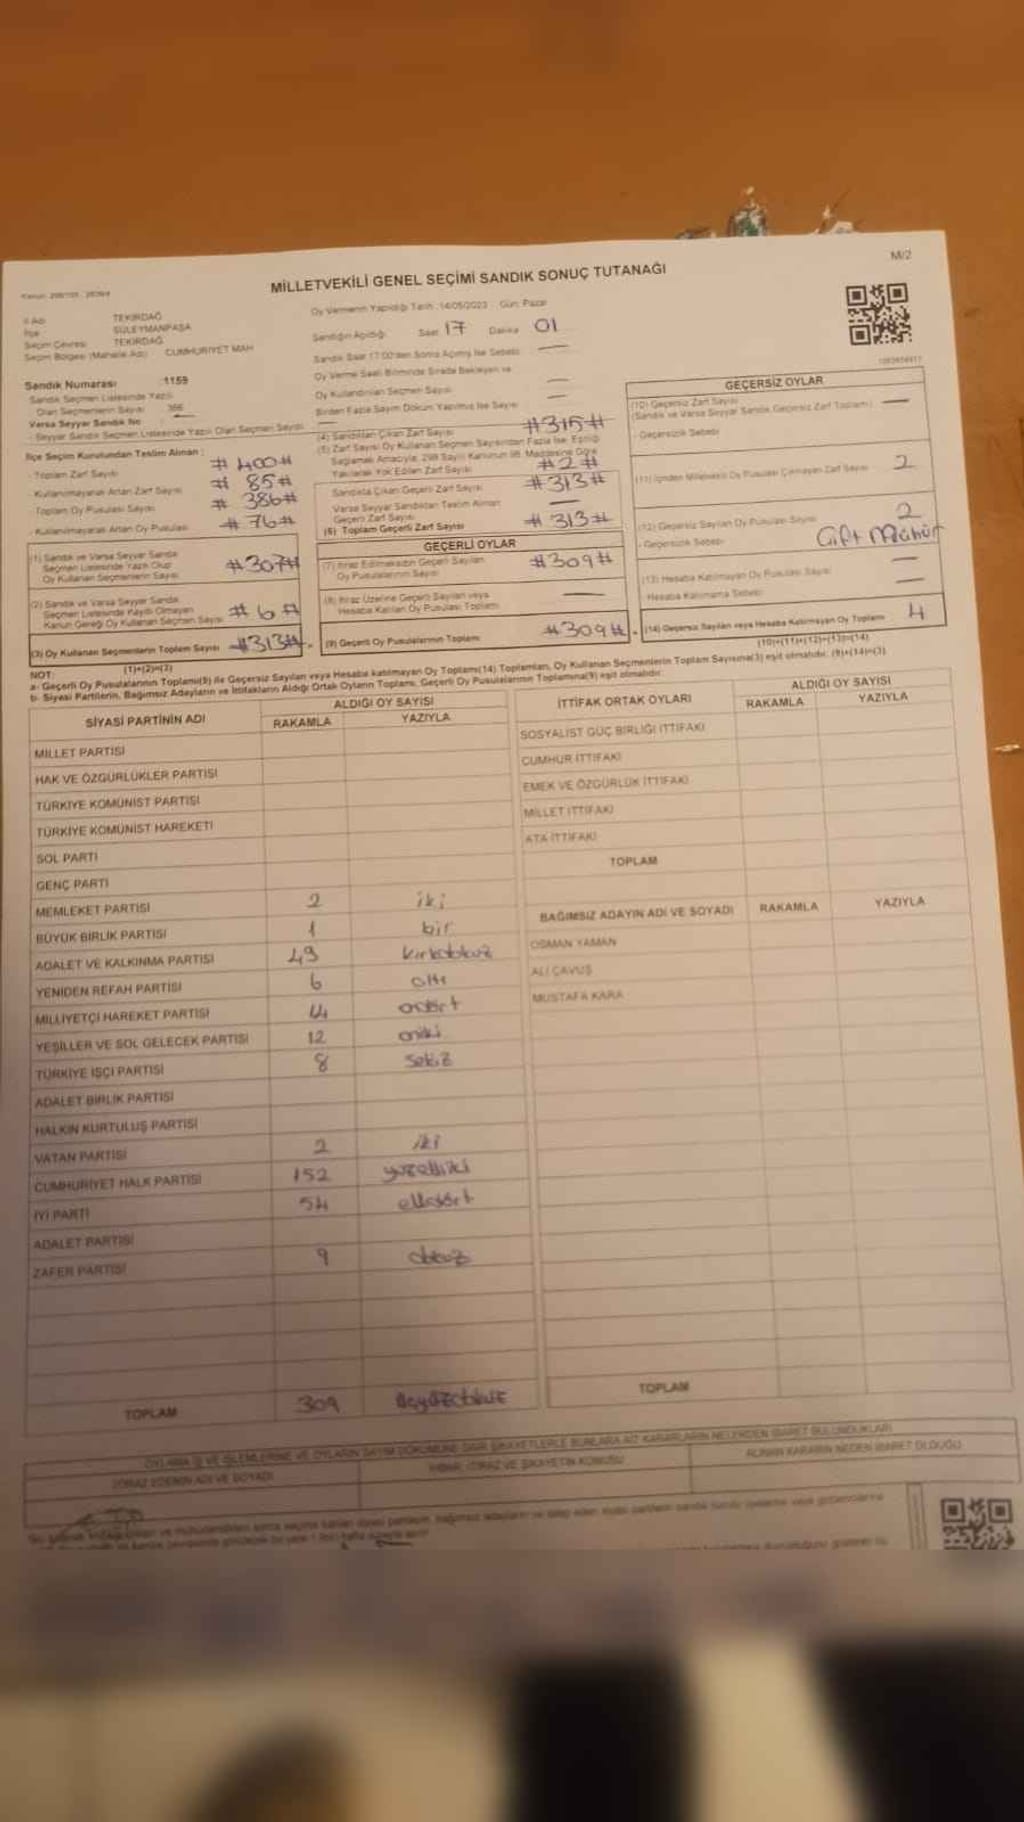 M/2
MİLLETVEKİLİ GENEL SEÇİMİ SANDIK SONUÇ TUTANAĞI
İl Adı TEKİRDAĞ
İlçe SÜLEYMANPAŞA
Seçim Çevresi TEKİRDAĞ
Seçim Bölgesi (Mahalle Adı) CUMHURİYET MAH
Sandık Numarası :1159
Sandık Seçmen Listesinde Yazılı
Olan Seçmenlerin Sayısı 366
Varsa Seyyar Sandık No
- Seyyar Sandık Seçmen Listesinde Yazılı Olan Seçmen Sayısı
İlçe Seçim Kurulundan Teslim Alınan :
- Toplam Zarf Sayısı # 400 #
- Kullanılmayarak Artan Zarf Sayısı # 85 #
- Toplam Oy Pusulası Sayısı # 386 #
- Kullanılmayarak Artan Oy Pusulası # 76 #
(1) Sandık ve Varsa Seyyar Sandık
Seçmen Listesinde Yazılı Olup
Oy Kullanan Seçmenlerin Sayısı # 307 #
(2) Sandık ve Varsa Seyyar Sandık
Seçmen Listesinde Kayıtlı Olmayan
Kanun Gereği Oy Kullanan Seçmen Sayısı # 6 #
(3) Oy Kullanan Seçmenlerin Toplam Sayısı # 313 #
(1)+(2)=(3)
Oy Vermenin Yapıldığı Tarih :14/05/2023 Gün: Pazar
Sandığın Açıldığı: Saat 17 Dakika 01
Sandık Saat 17.00'den Sonra Açılmış İse Sebebi: —
Oy Verme Saati Bitiminde Sırada Bekleyen ve
Oy Kullandırılan Seçmen Sayısı —
Birden Fazla Sayım Döküm Yapılmış İse Sayısı —
(4) Sandıktan Çıkan Zarf Sayısı # 315 #
(5) Zarf Sayısı Oy Kullanan Seçmen Sayısından Fazla İse, Eşitliği
Sağlamak Amacıyla, 298 Sayılı Kanunun 98. Maddesine Göre
Yakılarak Yok Edilen Zarf Sayısı # 2 #
Sandıkta Çıkan Geçerli Zarf Sayısı # 313 #
Varsa Seyyar Sandıktan Teslim Alınan
Geçerli Zarf Sayısı —
(6) Toplam Geçerli Zarf Sayısı # 313 #
GEÇERLİ OYLAR
(7) İtiraz Edilmeksizin Geçerli Sayılan
Oy Pusulalarının Sayısı # 309 #
(8) İtiraz Üzerine Geçerli Sayılan veya
Hesaba Katılan Oy Pusulası Toplamı —
(9) Geçerli Oy Pusulalarının Toplamı # 309 #
GEÇERSİZ OYLAR
(10) Geçersiz Zarf Sayısı —
(Sandık ve Varsa Seyyar Sandık Geçersiz Zarf Toplamı)
- Geçersizlik Sebebi:
(11) İçinden Milletvekili Oy Pusulası Çıkmayan Zarf Sayısı 2
(12) Geçersiz Sayılan Oy Pusulası Sayısı 2
- Geçersizlik Sebebi Çift Mühür
(13) Hesaba Katılmayan Oy Pusulası Sayısı —
- Hesaba Katılmama Sebebi —
(14) Geçersiz Sayılan veya Hesaba Katılmayan Oy Toplamı 4
(10)+(11)+(12)+(13)=(14)
NOT:
a- Geçerli Oy Pusulalarının Toplamı(9) ile Geçersiz Sayılan veya Hesaba katılmayan Oy Toplamı(14) Toplamları, Oy Kullanan Seçmenlerin Toplam Sayısına(3) eşit olmalıdır. (9)+(14)=(3)
b- Siyasi Partilerin, Bağımsız Adayların ve İttifakların Aldığı Ortak Oyların Toplamı, Geçerli Oy Pusulalarının Toplamına(9) eşit olmalıdır.
SİYASİ PARTİNİN ADI ALDIĞI OY SAYISI
RAKAMLA YAZIYLA
MİLLET PARTİSİ
HAK VE ÖZGÜRLÜKLER PARTİSİ
TÜRKİYE KOMÜNİST PARTİSİ
TÜRKİYE KOMÜNİST HAREKETİ
SOL PARTİ
GENÇ PARTİ
MEMLEKET PARTİSİ 2 iki
BÜYÜK BİRLİK PARTİSİ 1 bir
ADALET VE KALKINMA PARTİSİ 49 kırkdokuz
YENİDEN REFAH PARTİSİ 6 altı
MİLLİYETÇİ HAREKET PARTİSİ 14 ondört
YEŞİLLER VE SOL GELECEK PARTİSİ 12 oniki
TÜRKİYE İŞÇİ PARTİSİ 8 sekiz
ADALET BİRLİK PARTİSİ
HALKIN KURTULUŞ PARTİSİ
VATAN PARTİSİ 2 iki
CUMHURİYET HALK PARTİSİ 152 yüzelliiki
İYİ PARTİ 54 ellidört
ADALET PARTİSİ
ZAFER PARTİSİ 9 dokuz
TOPLAM 309 üçyüzdokuz
İTTİFAK ORTAK OYLARI ALDIĞI OY SAYISI
RAKAMLA YAZIYLA
SOSYALİST GÜÇ BİRLİĞİ İTTİFAKI
CUMHUR İTTİFAKI
EMEK VE ÖZGÜRLÜK İTTİFAKI
MİLLET İTTİFAKI
ATA İTTİFAKI
TOPLAM
BAĞIMSIZ ADAYIN ADI VE SOYADI RAKAMLA YAZIYLA
OSMAN YAMAN
ALİ ÇAVUŞ
MUSTAFA KARA
TOPLAM
İTİRAZ EDENİN ADI VE SOYADI
İHBAR, İTİRAZ VE ŞİKAYETİN KONUSU
ALINAN KARARIN NEDEN İBARET OLDUĞU